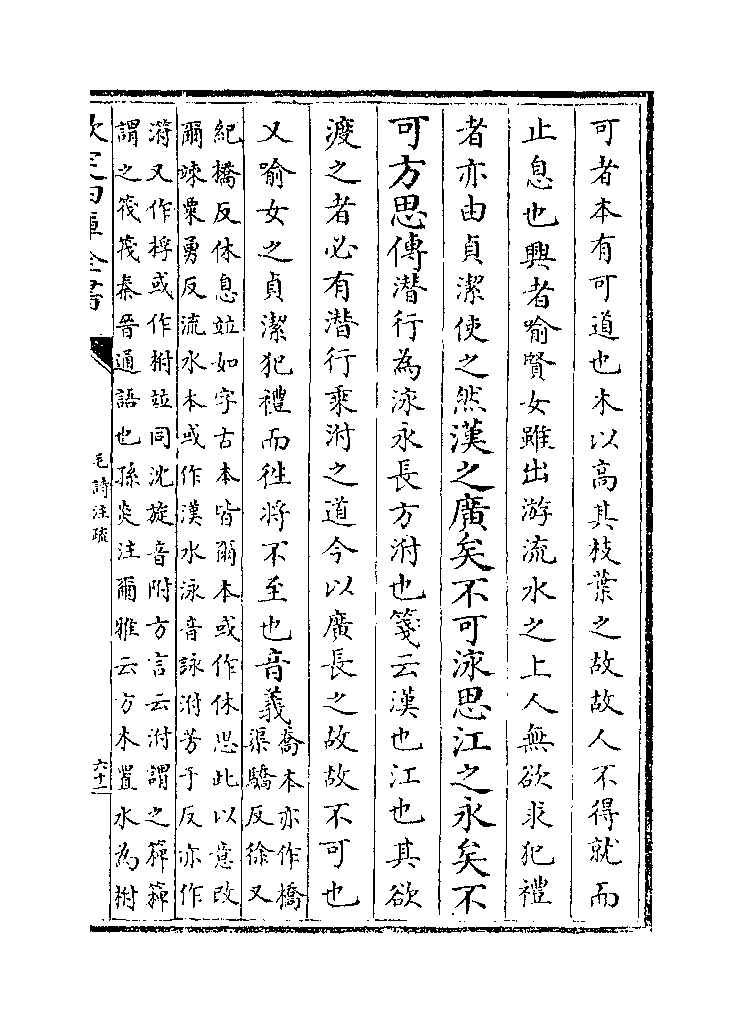 可者本有可道也木以高其枝葉之故故人不得就而
止息也興者喻賢女雖出游流水之上人無欲求犯禮
者亦由貞潔使之然漢之廣矣不可泳思江之永矣不
可方思傳潛行為泳永長方泭也箋云漢也江也其欲
渡之者必有潛行乘泭之道今以廣長之故故不可也
又喻女之貞潔犯禮而徃將不至也音義
喬木亦作橋
渠驕反徐又
紀橋反休息竝如字古本皆爾本或作休思此以意改
爾竦粟勇反流水本或作漢水泳音詠泭芳于反亦作
㳺又作桴或作柎竝同沈旋音附方言云泭謂之䉬䉬
謂之筏筏秦晉通語也孫炎注爾雅云方木置水為柎
欽定四庫全書
毛詩注疏
六十二